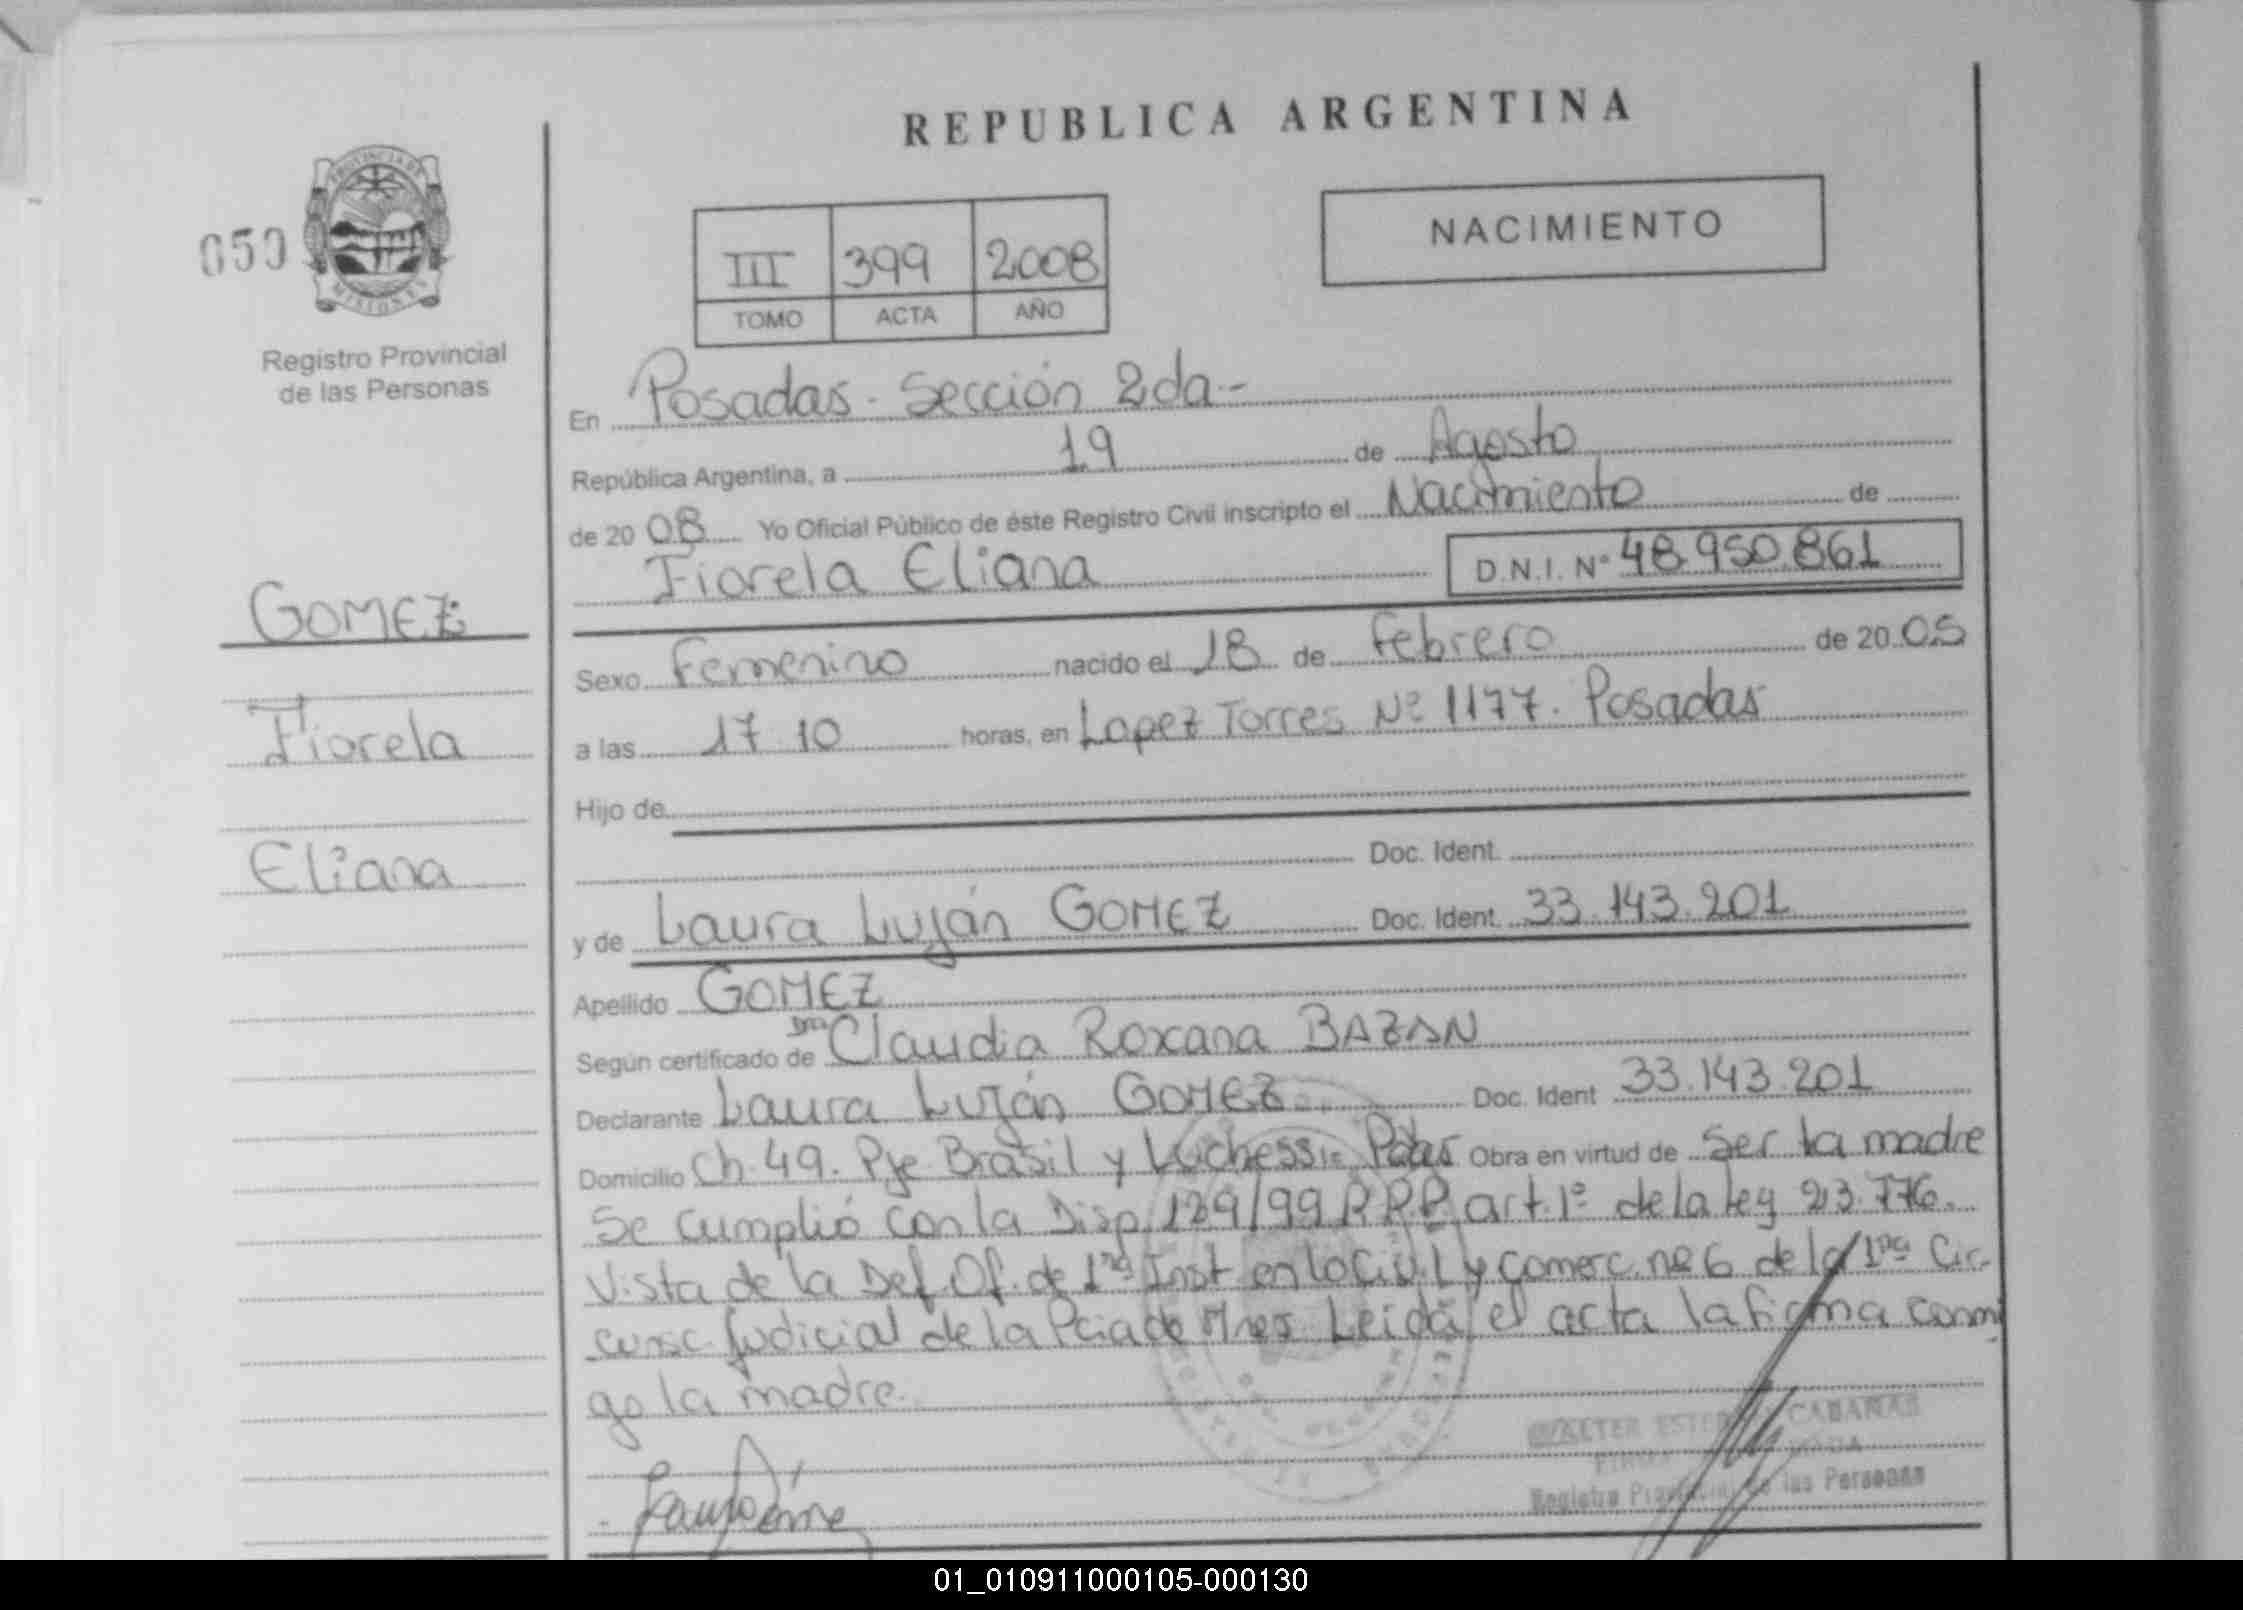 REPUBLICA ARGENTINA
050
PROVINCIA DE
MISIONES
Registro Provincial
de las Personas
III 399 2008
TOMO ACTA AÑO
NACIMIENTO
En Posadas - Sección 2da -
República Argentina, a 19 de Agosto
de 2008 Yo Oficial Público de éste Registro Civil inscripto el Nacimiento de
Fiorela Eliana D.N.I. Nº 48.950.861
GOMEZ
Fiorela
Eliana
Sexo Femenino nacido el 18 de Febrero de 2005
a las 17 10 horas, en Lopez Torres Nº 1177. Posadas
Hijo de
Doc. Ident.
y de Laura Luján GOMEZ Doc. Ident. 33.143.201
Apellido GOMEZ
Según certificado de Dra Claudia Roxana BAZAN
Declarante Laura Luján GOMEZ Doc. Ident 33.143.201
Domicilio Ch. 49. Pje Brasil y Luchessi - Pdas Obra en virtud de Ser la madre
Se cumplió con la Disp. 129/99 R.P.P. art. 1º de la ley 23.776.
Vista de la Def. Of. de 1ra Inst en lo Civil y Comerc. nº 6 de la 1ra Cir-
cunsc. Judicial de la Pcia de Mnes. Leída el acta la firma conmi
go la madre.
WALTER CABAÑAS
Registro Provincial de las Personas
01_010911000105-000130